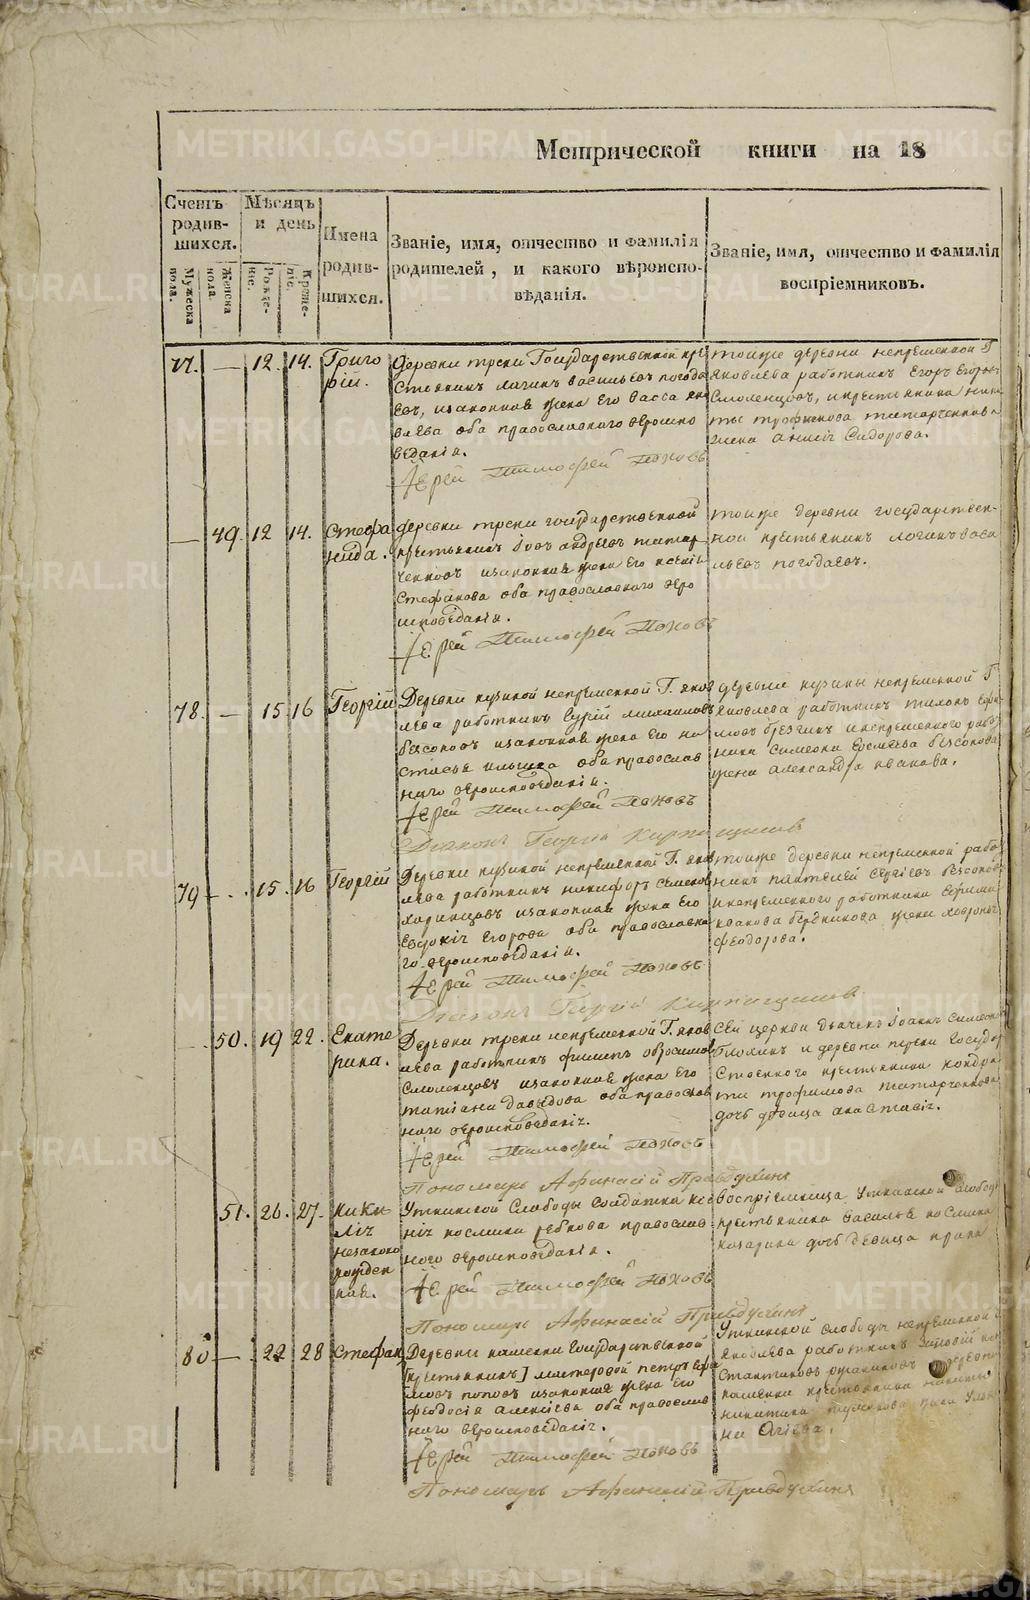 Метрической книги на 18
Счетъ родив-шихся.
Мужеска пола.
Женска пола.
Мѣсяцъ и день
Рожде-нiе.
Креще-нiе.
Имена родив-шихся.
Званiе, имя, отчество и фамилiя родителей, и какого вѣроиспо-вѣданiя.
Званiе, имя, отчество и фамилiя воспрiемниковъ.
77. — 12. 14. Григо
рiй.
Деревни трески Государственной кре
стьянинъ логинъ васильевъ погода
евъ, изаконная жена Его васса яко
влева оба православнаго вѣроиспо
вѣданiя.
Iерей Тимофей Поповъ
тоиже деревни непременной Г
Яковлева работникъ Егоръ Егоровъ
Смоленцовъ, икрестьянина ники
ты трофимова татарченкова
жена Сидорова.
— 49. 12 14. Стефа
нида.
деревни трски государственной
крестьянинъ Iовъ андреевъ татар
ченковъ изаконная жена Его ксенiя
Стефанова оба православнаго вѣро
исповѣданiя.
Iерей Тимофей Поповъ
тоиже деревни государствен-
ной крестьянинъ логинъ васи
льевъ погодаевъ.
78. — 15. 16 Георгiй
Деревни кузиной непременной Г. яков
лева работникъ михаиловъ
безсоновъ изаконная жена Его на
стасья ильина оба православ
наго вѣроисповѣданiя.
Iерей Тимофей Поповъ
Дiаконъ Георгiй Кирпищиковъ
деревни кузины непременной Г
Яковлева работникъ тихонъ
и непременнаго работ
ника Симеона Еремѣева безсонова
жена александра иванова.
79 — 15. 16 Георгiй
Деревни кузиной непременной Г. яков
лева работникъ никифоръ семеновъ
изаконная жена Его
Евдокiя Егорова оба православна
го вѣроисповѣданiя.
Iерей Тимофей Поповъ
Дiаконъ Георгiй Кирпищиковъ
тоиже деревни непременной рабо
никъ пантелей Сергiевъ безсоновъ
инепременнаго работника ефима
иванова жена
феодорова.
— 50. 19 22. Екате
рина.
Деревни трски непременной Г. яков
лева работникъ филипъ
Смоленцовъ изаконная жена Его
татiана давыдова оба православ
наго вѣроисповѣданiя.
Iерей Тимофей Поповъ
Пономарь Афанасiй Правдухинъ
Сей церкви дьячекъ Iоаннъ симеоновъ
и деревни трски Государ
ственнаго крестьянина кондра
тiя трофимова татарченкова
дочь девица анастасiя.
51. 26. 27.
незаконо
рожден
ная.
Уткинской Слободы Солдатка ксе
нiя рябкова православ
наго вѣроисповѣданiя.
Iерей Тимофей Поповъ
Пономарь Афанасiй Правдухинъ
воспрiемница Уткинской слободы
крестьянина василья
козарина дочь девица
80 — 22 28 Стефанъ
Деревни каменки Государственной
[крестьянинъ] мастеровой петръ
поповъ изаконная жена Его
феодосiя алексѣева оба православ
наго вѣроисповѣданiя.
Iерей Тимофей Поповъ
Пономарь Афанасiй Правдухинъ
Уткинской слободы непременной Г
Яковлева работникъ
деревни
каменки крестьянина никиты
никитина